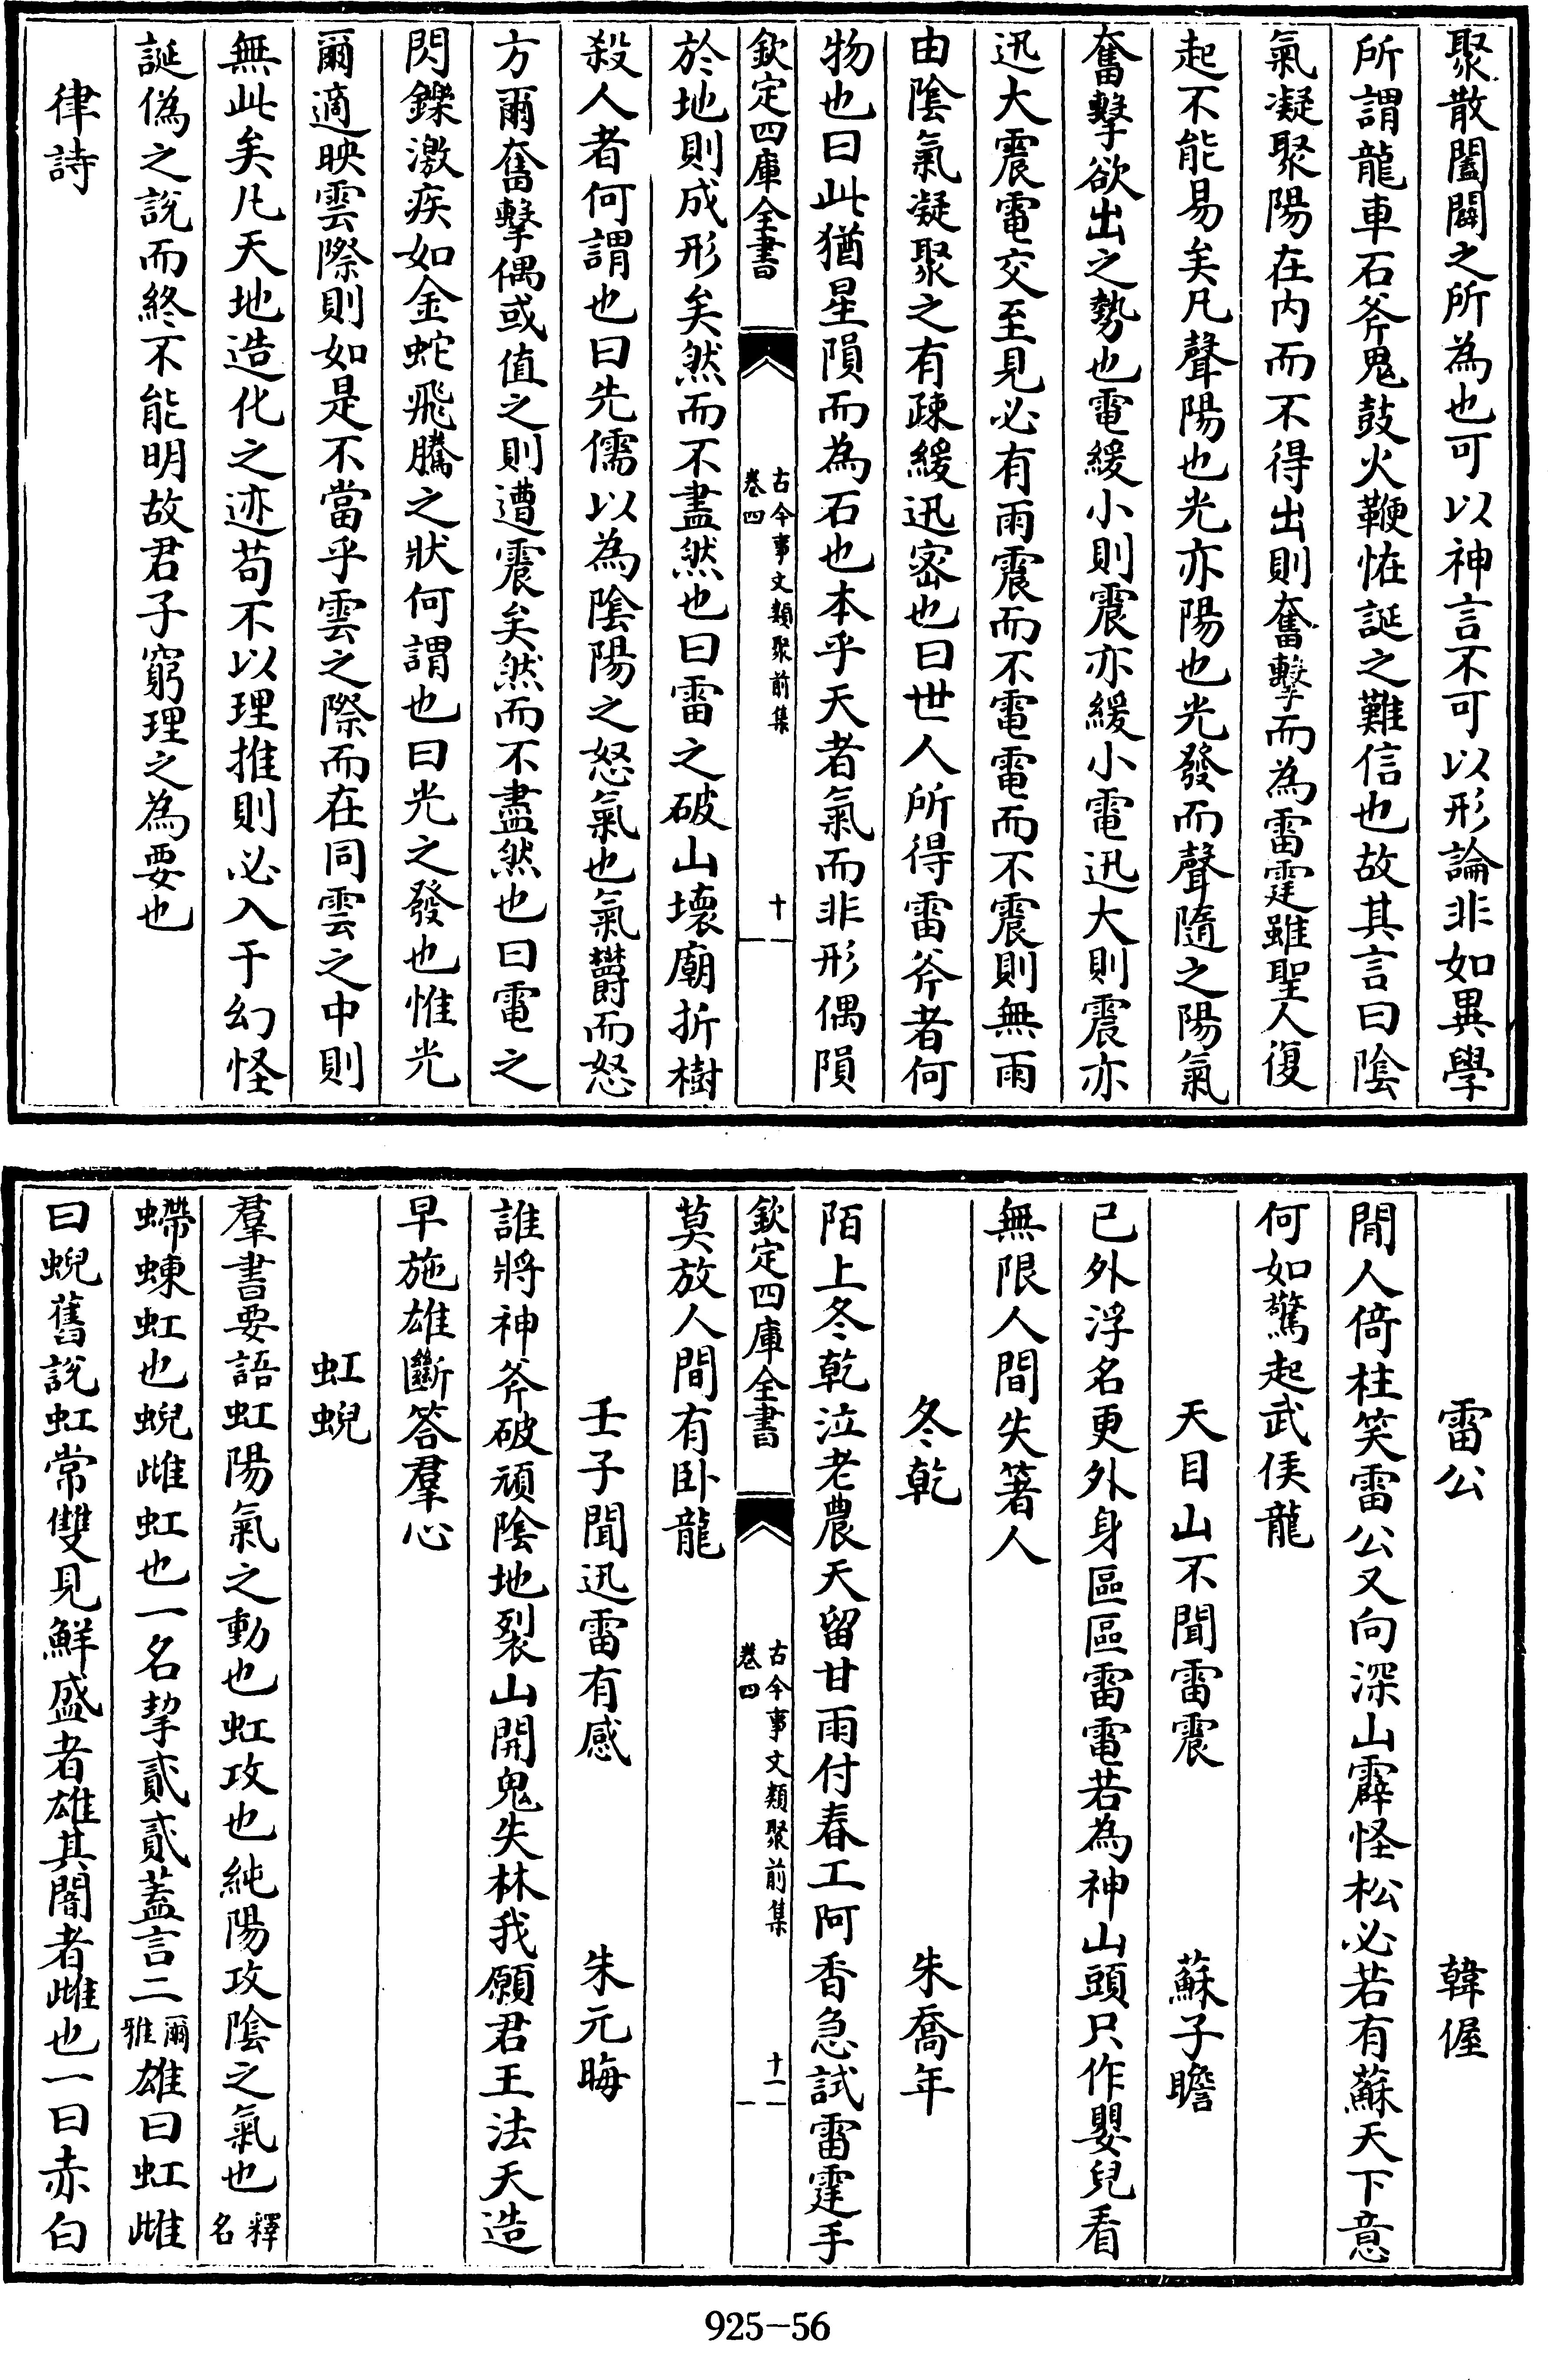 聚散闔闢之所為也可以神言不可以形論非如異學
所謂龍車石斧鬼鼓火鞭恠誕之難信也故其言曰隂
氣凝聚陽在内而不得出則奮擊而為雷霆雖聖人復
起不能易矣凡聲陽也光亦陽也光發而聲隨之陽氣
奮擊欲出之勢也電緩小則震亦緩小電迅大則震亦
迅大震電交至見必有雨震而不電電而不震則無雨
由隂氣凝聚之有疎緩迅宻也曰世人所得雷斧者何
物也曰此猶星隕而為石也本乎天者氣而非形偶隕
欽定四庫全書
古今事文類聚前集
卷四
十
於地則成形矣然而不盡然也曰雷之破山壞廟折樹
殺人者何謂也曰先儒以為隂陽之怒氣也氣欝而怒
方爾奮擊偶或值之則遭震矣然而不盡然也曰電之
閃鑠激疾如金蛇飛騰之狀何謂也曰光之發也惟光
爾適映雲際則如是不當乎雲之際而在同雲之中則
無此矣凡天地造化之迹苟不以理推則必入于幻怪
誕偽之説而終不能明故君子窮理之為要也
律詩
雷公　韓偓
閒人倚柱笑雷公又向深山霹怪松必若有蘇天下意
何如驚起武侯龍
天目山不聞雷震　蘇子瞻
已外浮名更外身區區雷電若為神山頭只作嬰兒看
無限人間失箸人
冬乾　朱喬年
陌上冬乾泣老農天留甘雨付春工阿香急試雷霆手
欽定四庫全書
古今事文類聚前集
卷四
十一
莫放人間有卧龍
壬子聞迅雷有感　朱元晦
誰將神斧破頑隂地裂山開鬼失林我願君王法天造
早施雄斷答羣心
虹蜺
羣書要語虹陽氣之動也虹攻也純陽攻隂之氣也釋名
螮蝀虹也蜺雌虹也一名挈貳貳蓋言二爾雅雄曰虹雌
曰蜺舊説虹常雙見鮮盛者雄其闇者雌也一曰赤白
925-56